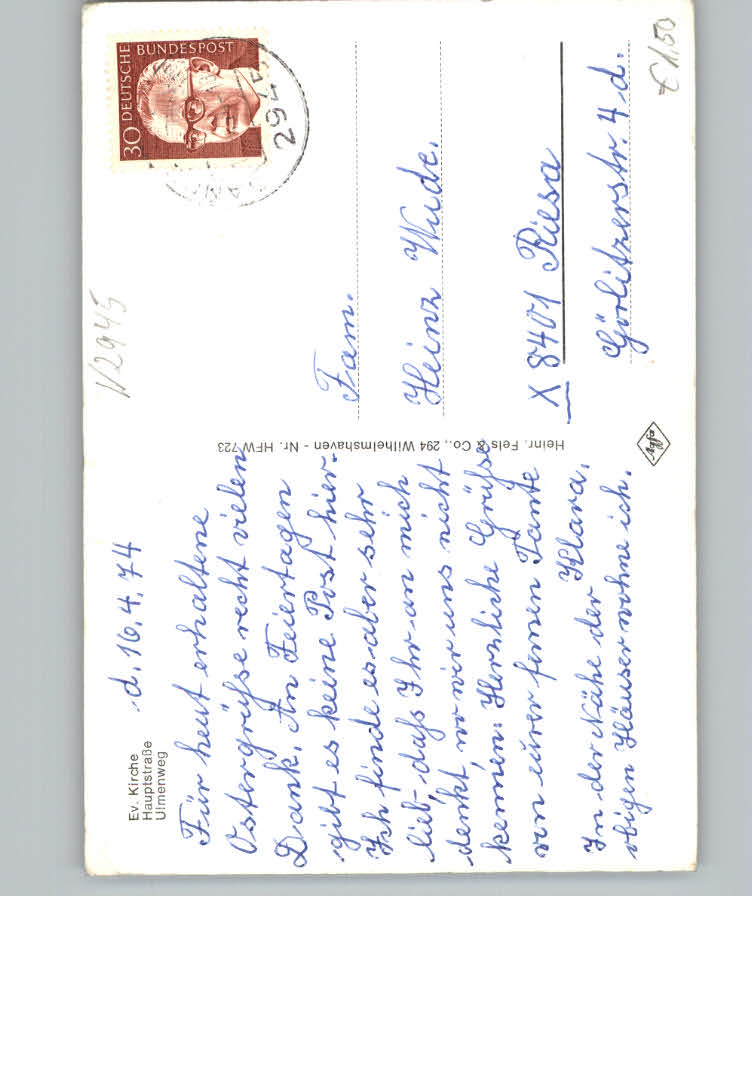 Ev. Kirche
Hauptstraße
Ulmenweg
d. 16.4.74
Für heut erhaltene
Ostergrüße recht vielen
Dank. An Feiertagen
gibt es keine Post hier.
Ich finde es aber sehr
lieb, daß Ihr an mich
denkt, wo wir uns nicht
kennen. Herzliche Grüße
von eurer fernen Tante
Klara.
In der Nähe der
obigen Häuser wohne ich.
Heinr. Fels & Co., 294 Wilhelmshaven - Nr. HFW 723
Agfa
1/2945
30 DEUTSCHE BUNDESPOST
294
Fam.
Heinz Wude.
X 8401 Riesa
Görlitzerstr. 4 d.
€ 1,50